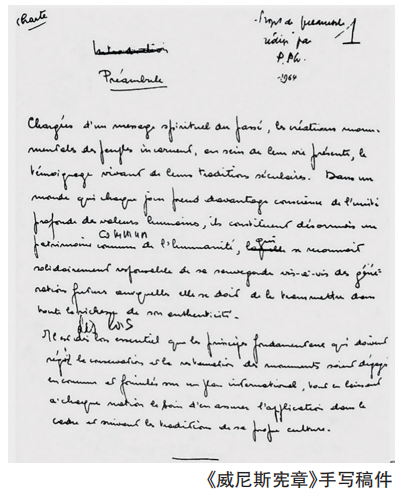 charte
- Projet de préambule
rédigé par
P. Ph.
- 1964
1
Introduction
Préambule
Chargées d'un message spirituel du passé, les créations monu-
mentales des peuples incarnent, au sein de leur vie présente, le
témoignage vivant de leurs traditions séculaires. Dans un
monde qui chaque jour prend davantage conscience de l'unité
profonde des valeurs humaines, ils constituent désormais un
patrimoine commun de l'humanité, laquelle qui se reconnait
solidairement responsable de sa sauvegarde vis-à-vis des géné-
ration futures auxquelles elle se doit de le transmettre dans
toute la richesse de son authenticité.
dès lors
Il est essentiel que les principes fondamentaux qui doivent
régir la conservation et la restauration des monuments soient dégagés
en commun et formulés sur un plan international, tout en laissant
à chaque nation le soin d'en assurer l'application dans le
cadre et suivant les traditions de sa propre culture.
《威尼斯宪章》手写稿件